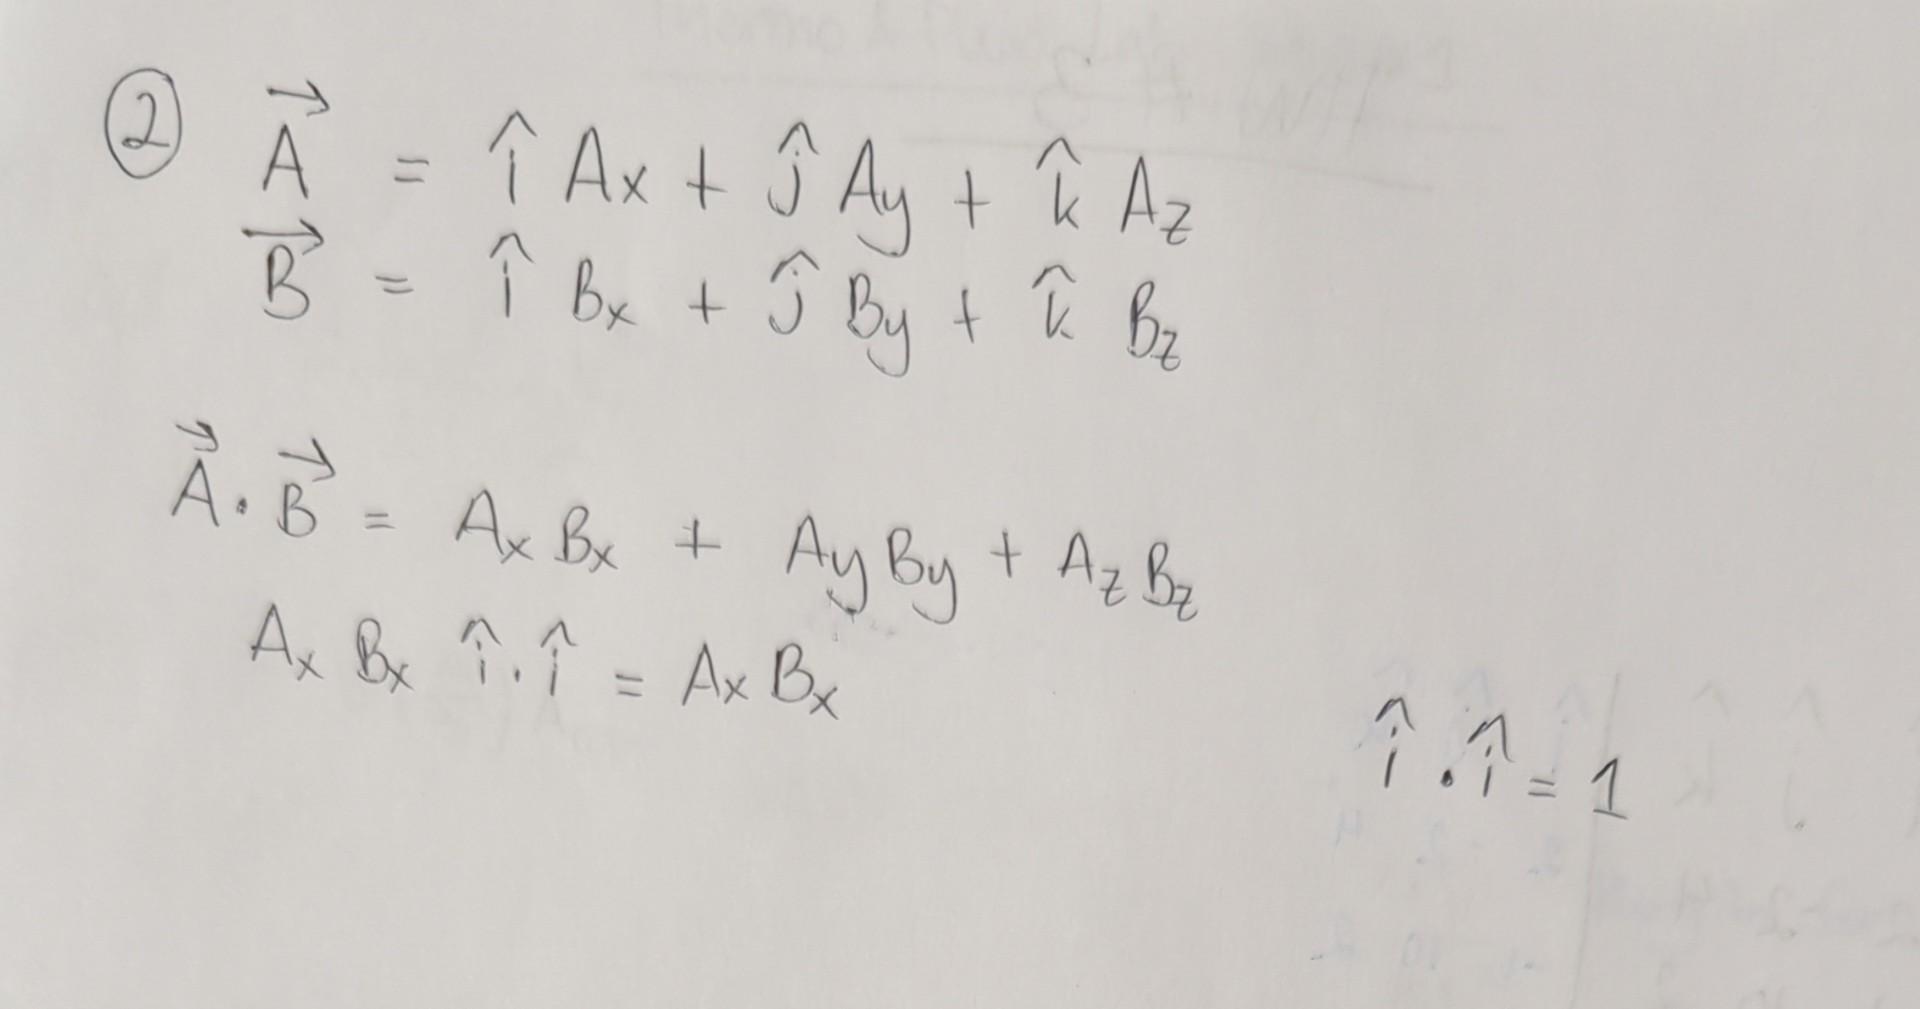 ② A⃗ = î Ax + ĵ Ay + k̂ Az
B⃗ = î Bx + ĵ By + k̂ Bz
A⃗ · B⃗ = Ax Bx + Ay By + Az Bz
Ax Bx î · î = Ax Bx
î · î = 1